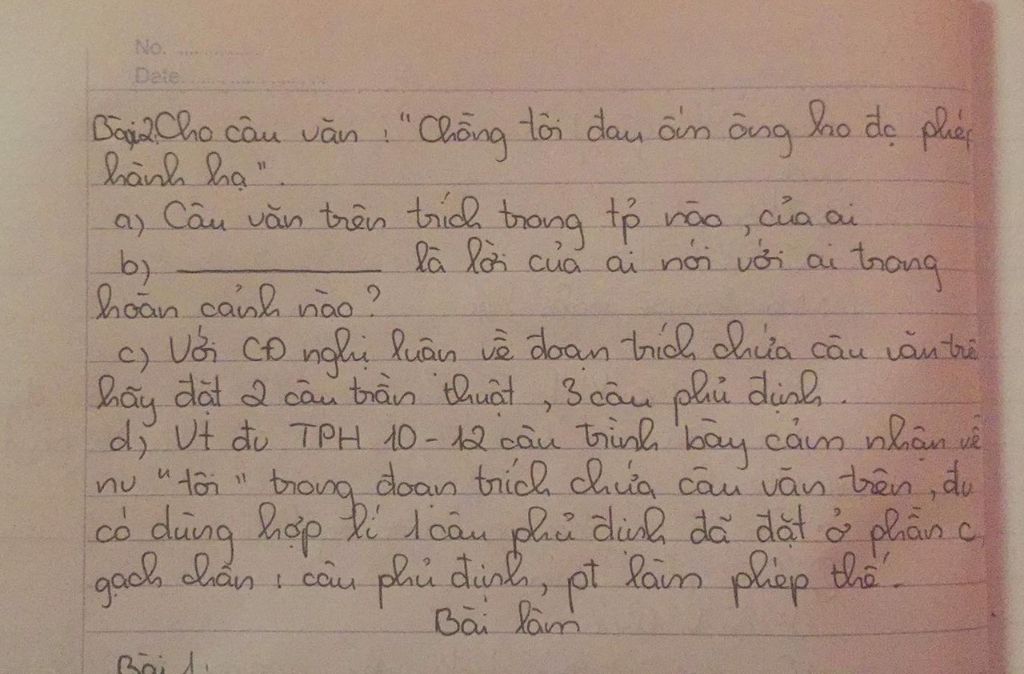 No. ............
Date ....................
Bài 2. Cho câu văn : "Chồng tôi đau ốm ông ko đc phép
hành hạ".
a) Câu văn trên trích trong tp nào, của ai
b) ____________ là lời của ai nói với ai trong
hoàn cảnh nào?
c) Với CĐ nghị luận về đoạn trích chứa câu văn trê
hãy đặt 2 câu trần thuật, 3 câu phủ định.
d) Vt đv TPH 10 - 12 câu trình bày cảm nhận về
nv "tôi" trong đoạn trích chứa câu văn trên, đv
có dùng hợp lí 1 câu phủ định đã đặt ở phần c,
gạch chân : câu phủ định, pt làm phép thế.
Bài làm
Bài 1: